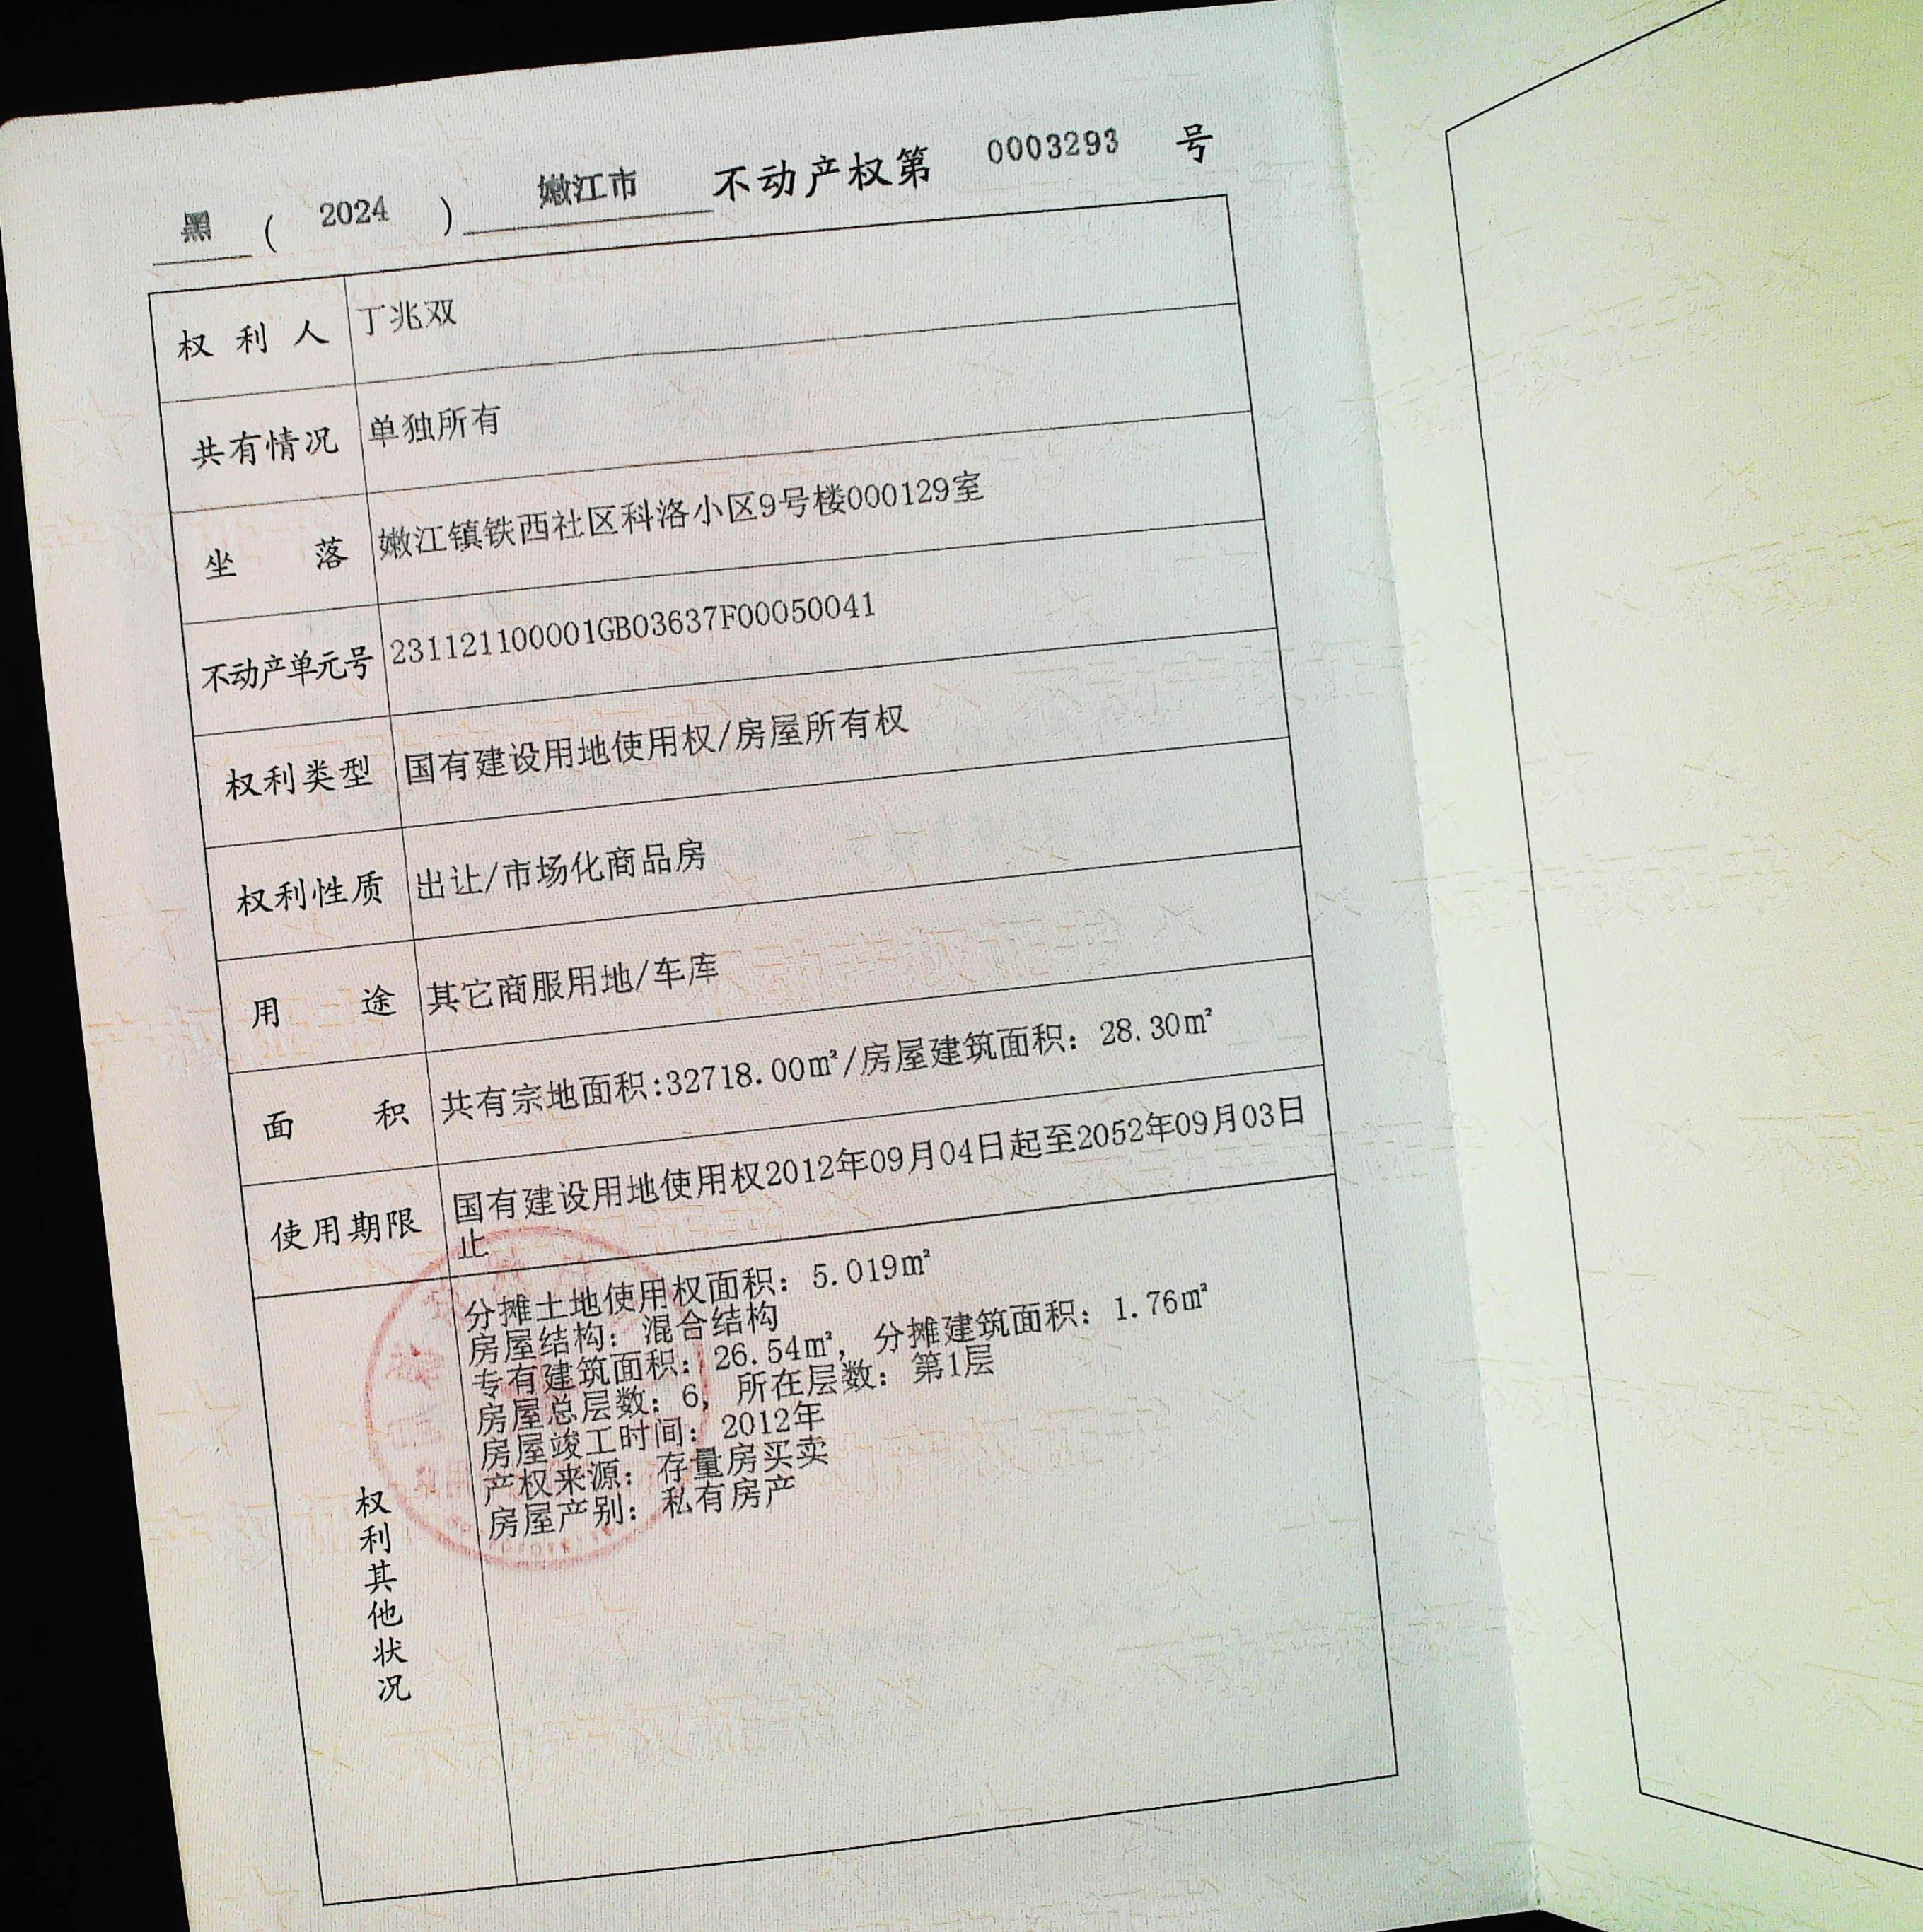 黑 ( 2024 ) 嫩江市 不动产权第 0003293 号
权利人 丁兆双
共有情况 单独所有
坐落 嫩江镇铁西社区科洛小区9号楼000129室
不动产单元号 231121100001GB03637F00050041
权利类型 国有建设用地使用权/房屋所有权
权利性质 出让/市场化商品房
用途 其它商服用地/车库
面积 共有宗地面积:32718.00㎡/房屋建筑面积：28.30㎡
使用期限 国有建设用地使用权2012年09月04日起至2052年09月03日
止
权利其他状况
分摊土地使用权面积：5.019㎡
房屋结构：混合结构
专有建筑面积：26.54㎡，分摊建筑面积：1.76㎡
房屋总层数：6，所在层数：第1层
房屋竣工时间：2012年
产权来源：存量房买卖
房屋产别：私有房产